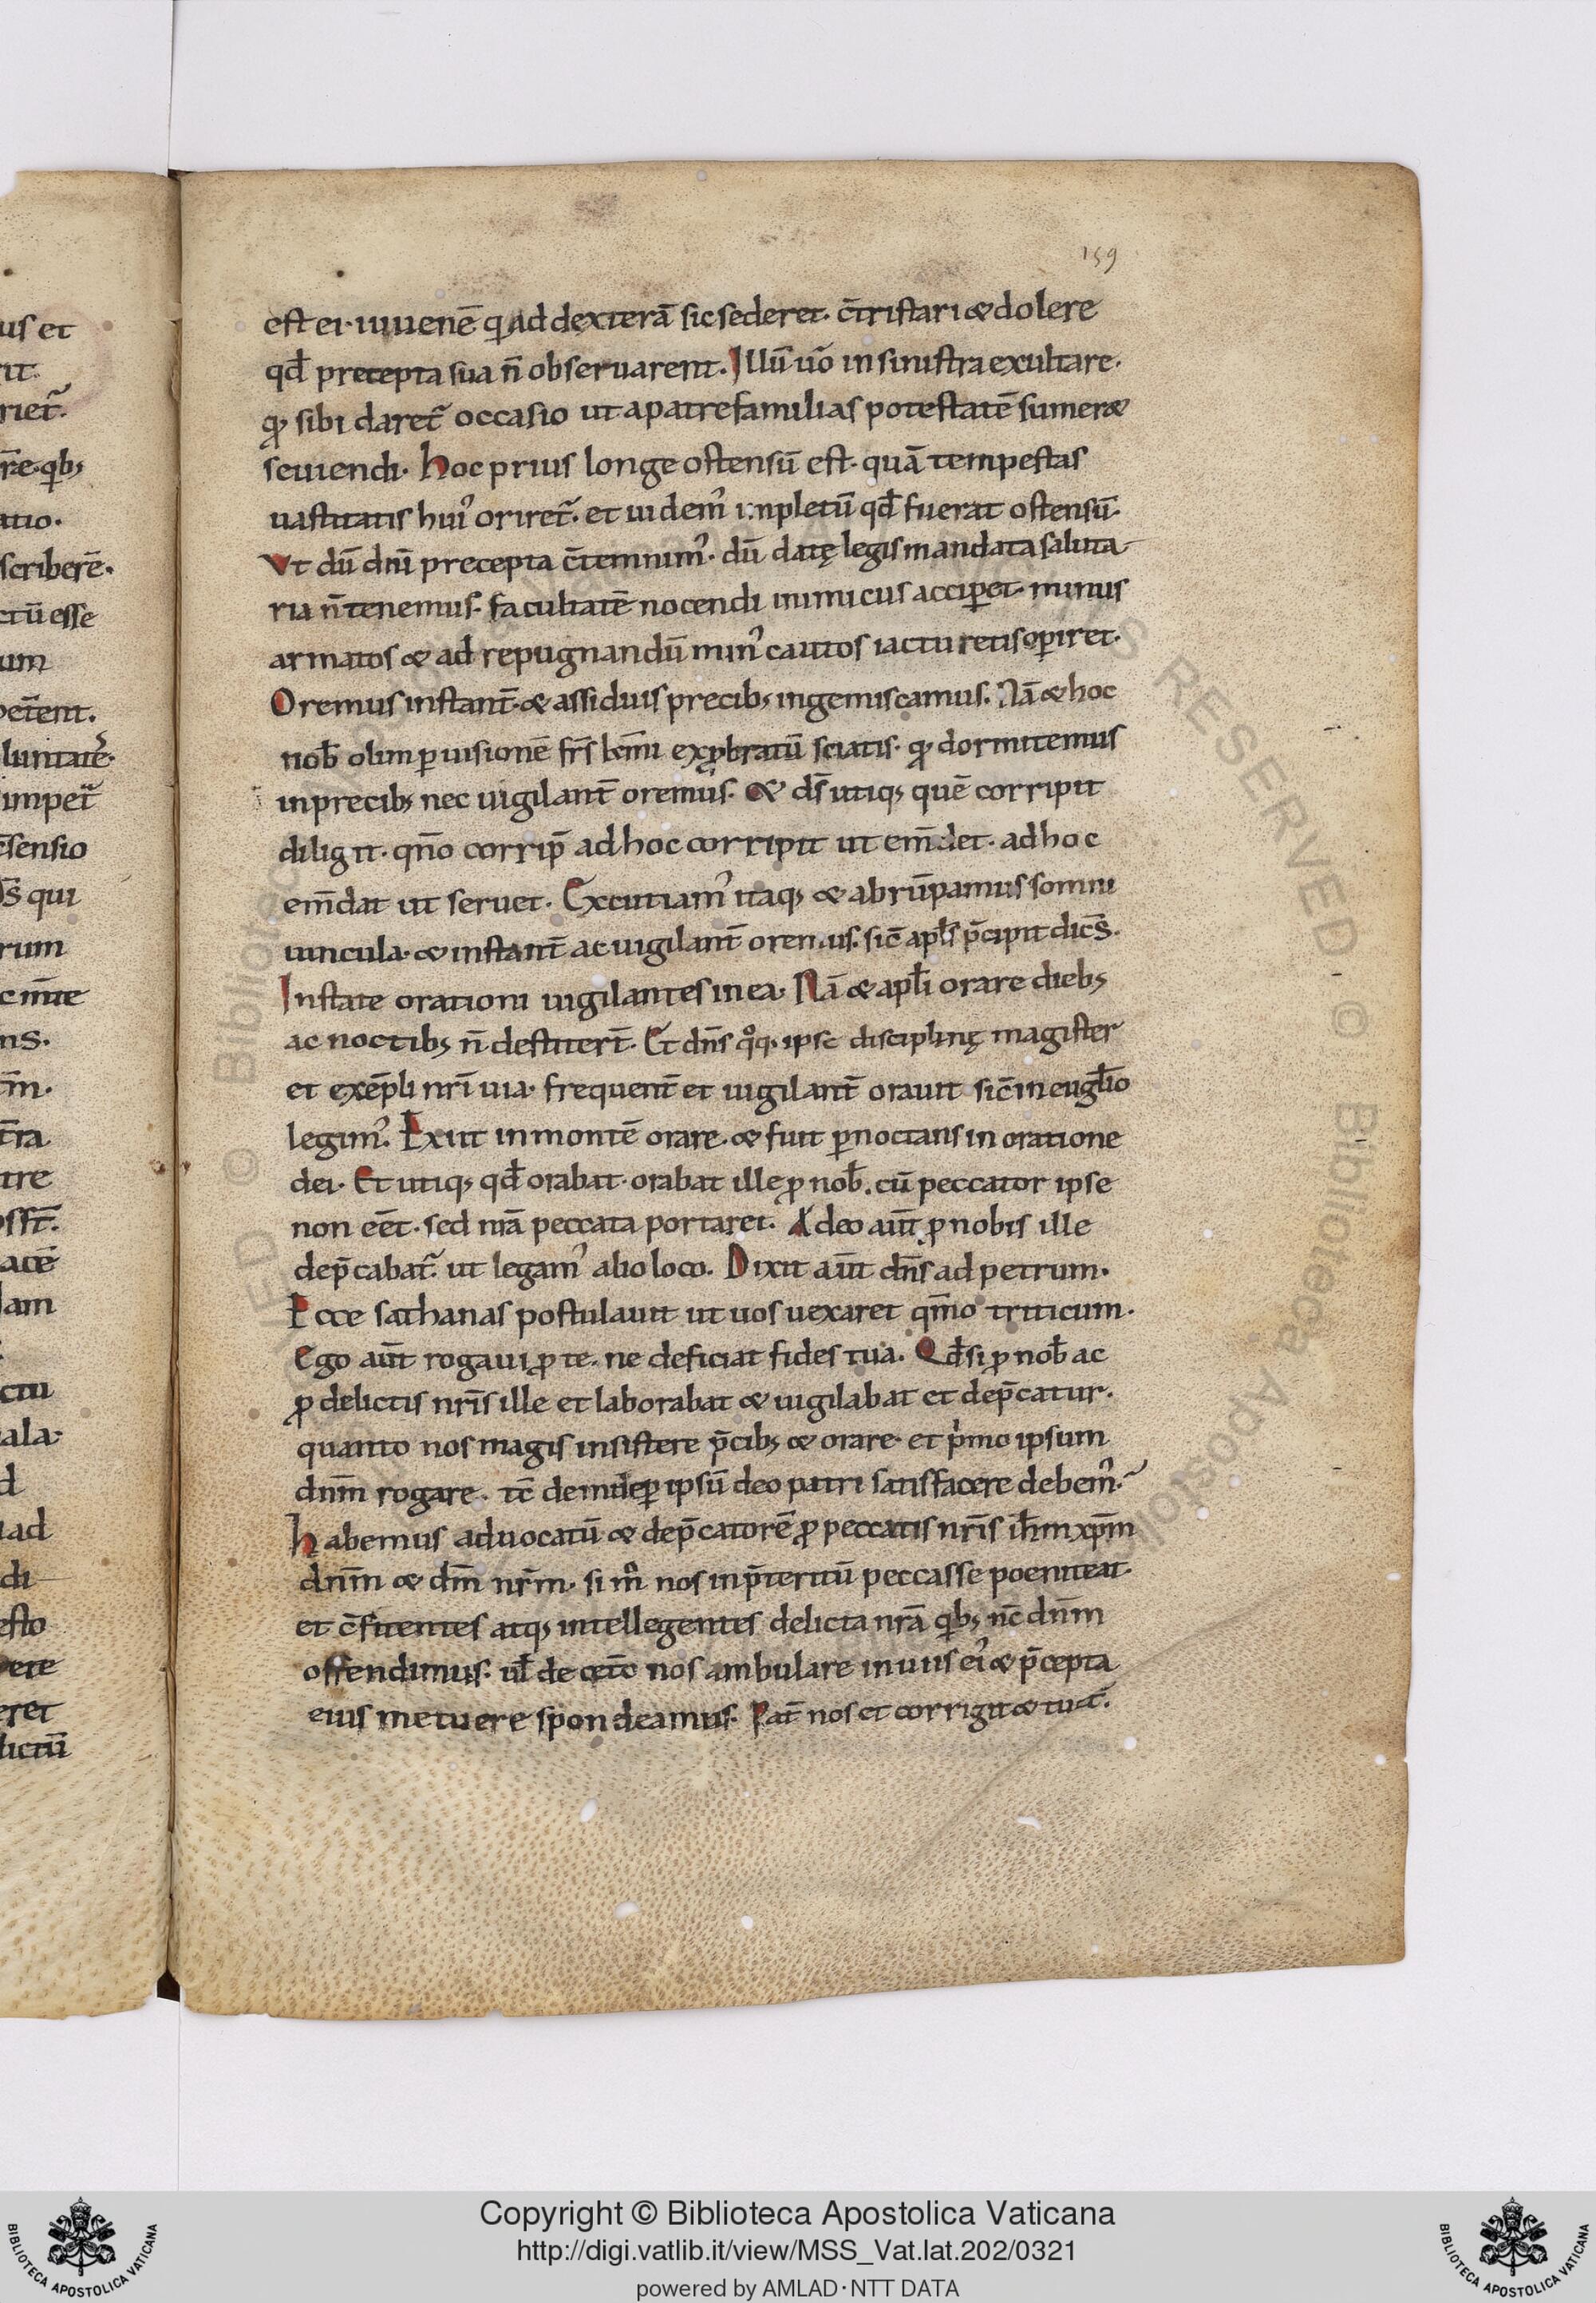 159
est ei· iuuenē qͥ ad dexterā sic sederet· c̄tristari & dolere
qđ precepta sua n̄ obseruarent. Illū uo̅ in sinistra exultare·
qꝫ sibi daret̄ occasio ut a patrefamilias potestatē sumer&
seuiendi· hoc prius longe ostensū est· quā tempestas
uastitatis huiꝰ oriret̄· et uidemꝰ inpletū qđ fuerat ostensū·
Vt dū dn̄i precepta c̄temnimꝰ· dū datę legis mandata saluta-
ria n̄ tenemus· facultatē nocendi inimicus acciꝑet· minus
armatos & ad repugnandū minꝰ cautos iactu retis oꝑiret·
Oremus instant̄· & assiduis precibꝫ ingemiscamus. Nā & hoc
nob̄ olim ꝑ uisionē fr̄s kmi̅ exꝓbratū sciatis· qꝫ dormitemus
in precibꝫ nec uigilant̄ oremus· & ds̄ utiqꝫ quē corripit
diligit· qn̄o corrip̄ ad hoc corripit ut em̄det· ad hoc
em̄dat ut seruet· Excutiamꝰ itaqꝫ & abrūpamus somni
uincula· & instant̄ ac uigilant̄ oremus· sic̄ apls̄ p̄cipit dic̄s·
Instate orationi uigilantes in ea· Nā & apl̄i orare diebꝫ
ac noctibꝫ n̄ destiter̄t· Et dn̄s qͦqꝫ ipse disciplinę magister
et exēpli nr̄i uia· frequent̄ et uigilant̄ orauit sic̄ in eugl̄io
legimꝰ. Exiit in montē orare· & fuit ꝑnoctans in oratione
dei· Et utiqꝫ qđ orabat· orabat ille ꝓ nob̄. cū peccator ipse
non ee̅t· sed nr̄a peccata portaret· Adeo aut̄ ꝓ nobis ille
dep̄cabat̄· ut legamꝰ alio loco. Dixit aut̄ dn̄s ad petrum·
Ecce sathanas postulauit ut uos uexaret qm̄o triticum·
Ego aut̄ rogaui ꝓ te· ne deficiat fides tua. Qđ si ꝓ nob̄ ac
ꝓ delictis nr̄is ille et laborabat & uigilabat et dep̄catur·
quanto nos magis insistere p̄cibꝫ & orare· et pͥmo ipsum
dn̄m rogare· tc̄ deinde ꝑ ipsū deo patri satisfacere debemꝰ·
habemus aduocatū & dep̄catorē ꝓ peccatis nr̄is ih̄m xp̄m
dn̄m & dm̄ nr̄m· si mͦ nos in p̄teritū peccasse poeniteat·
et c̄fitentes atqꝫ intellegentes delicta nr̄a qͥbꝫ nc̄ dn̄m
offendimus· ul̄ de cet̄o nos ambulare in uiis eiꝰ & p̄cepta
eius metuere spondeamus· Pat̄ nos et corrigit & tuet̄·
us et
rit·
riet̄·
r̄e· qͥbꝫ
atio·
scriberē·
ctū esse
um
luntatē·
impet̄
c̄sensio
s̄ qui
rum
ns·
t̄m·
t̄ra
tre
acē
lam
ctu
ala·
d
ad
di
esto
ere
eret
lictū
Copyright © Biblioteca Apostolica Vaticana
http://digi.vatlib.it/view/MSS_Vat.lat.202/0321
powered by AMLAD·NTT DATA
BIBLIOTECA APOSTOLICA VATICANA
BIBLIOTECA APOSTOLICA VATICANA